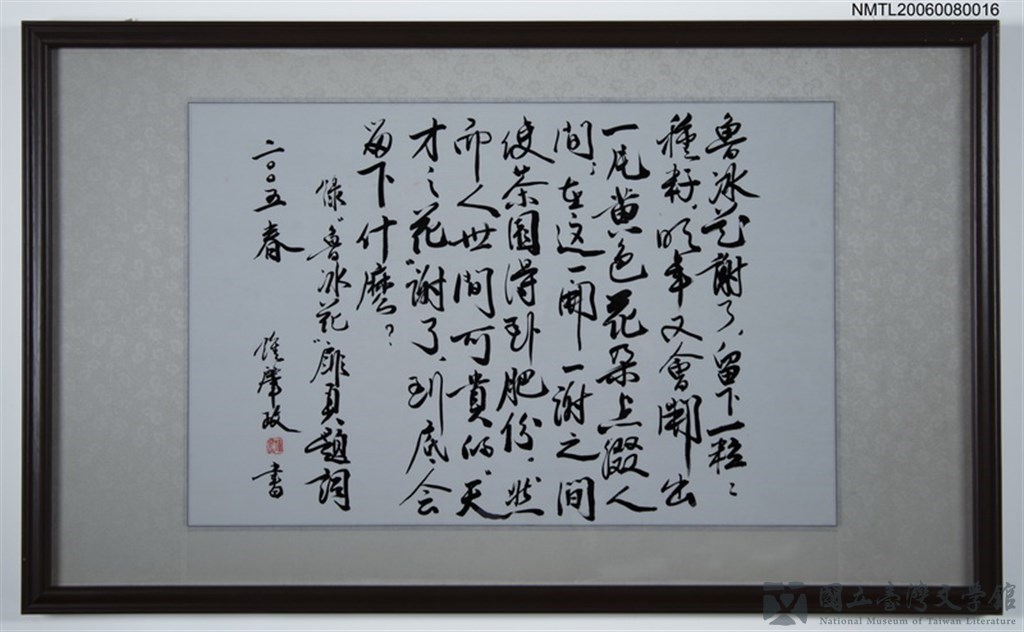 NMTL20060080016
魯冰花謝了,留下一粒々
種籽,明年又會開出
一片黃色花朵点綴人
間;在這一開一謝之間
使茶園得到肥份,然
而人世間可貴的"天
才之花"謝了,到底会
留下什麼?
錄"魯冰花"扉頁題詞
二〇〇五春 鍾肇政 書
國立臺灣文学館
National Museum of Taiwan Literature